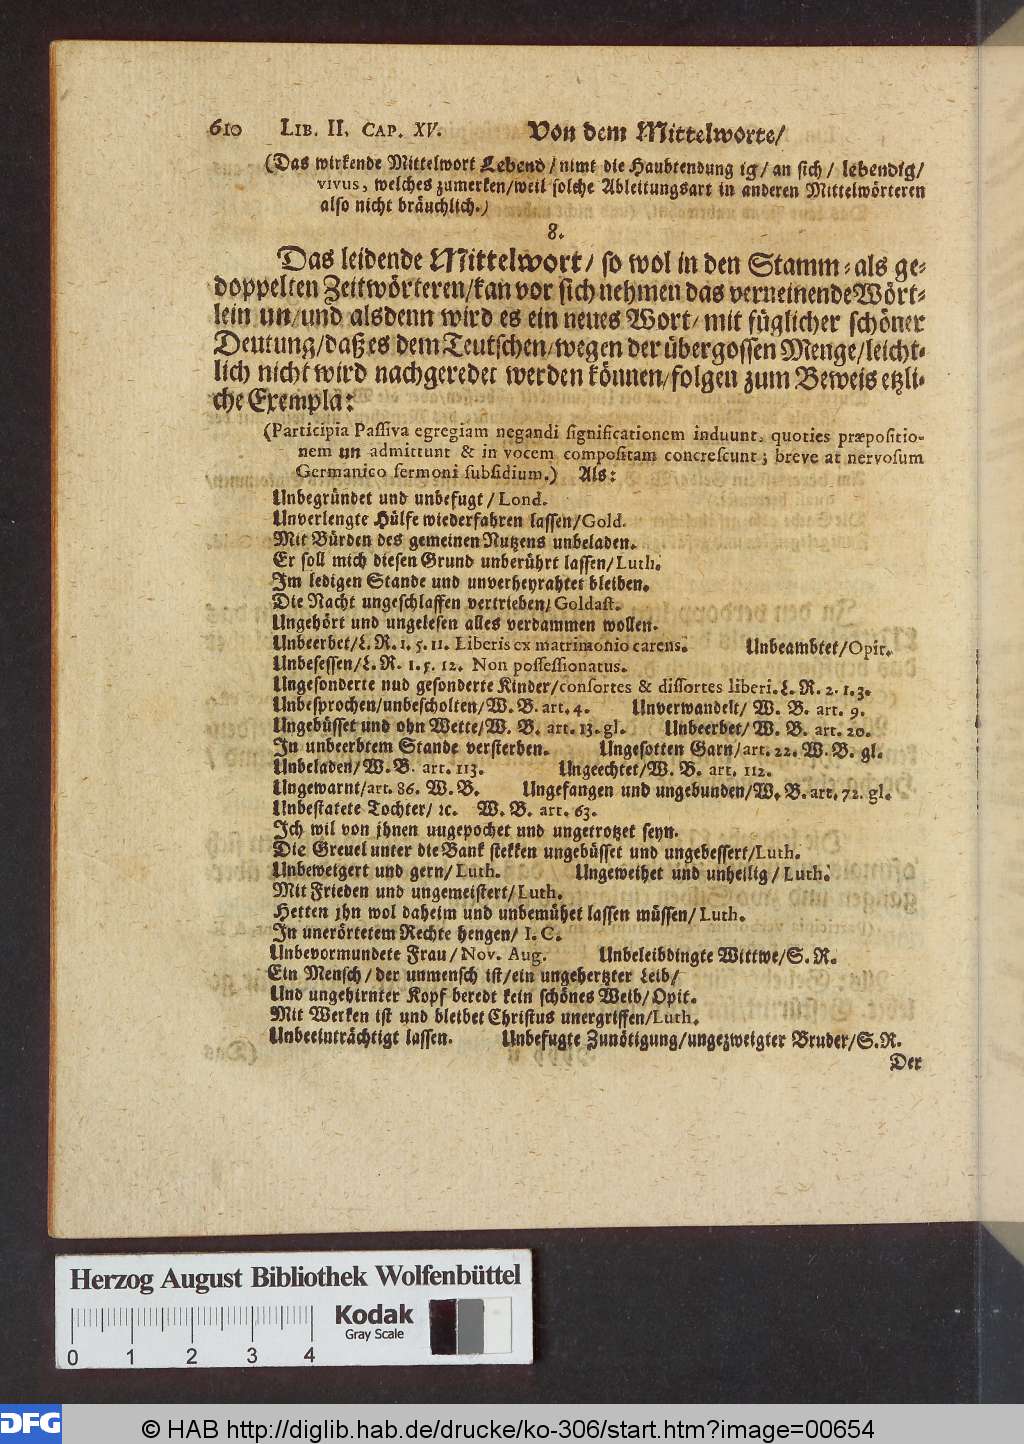 610 LIB. II, CAP. XV. Von dem Mittelworte/
(Das wirkende Mittelwort Lebend/nimt die Haubtendung ig/an sich/ lebendig/
vivus, welches zumerken/weil solche Ableitungsart in anderen Mittelwörteren
also nicht bräuchlich.)
8.
Das leidende Mittelwort/ so wol in den Stamm-als ge-
doppelten Zeitwörteren/kan vor sich nehmen das verneinende Wört-
lein un/und alsdenn wird es ein neues Wort/ mit füglicher schöner
Deutung/daß es dem Teutschen/wegen der übergossen Menge/leicht-
lich nicht wird nachgeredet werden können/folgen zum Beweis etzli-
che Exempla:
(Participia Passiva egregiam negandi significationem induunt, quoties præpositio-
nem un admittunt & in vocem compositam concrescunt; breve at nervosum
Germanico sermoni subsidium.) Als:
Unbegründet und unbefugt/Lond.
Unverlengte Hülfe wiederfahren lassen/Gold.
Mit Bürden des gemeinen Nutzens unbeladen.
Er soll mich diesen Grund unberührt lassen/Luth.
Im ledigen Stande und unverheyrahtet bleiben.
Die Nacht ungeschlaffen vertrieben/Goldast.
Ungehört und ungelesen alles verdammen wollen.
Unbeerbet/L.R. 1. 5. 11. Liberis ex matrimonio carens. Unbeambtet/Opit.
Unbesessen/L.R. 1. 5. 12. Non possessionatus.
Ungesonderte nud gesonderte Kinder/consortes & dissortes liberi. L.R. 2. 1. 3.
Unbesprochen/unbescholten/W.B. art. 4. Unverwandelt/ W. B. art. 9.
Ungebüsset und ohn Wette/W. B. art. 13. gl. Unbeerbet/ W. B. art. 20.
In unbeerbtem Stande versterben. Ungesotten Garn/art. 22. W. B. gl.
Unbeladen/W.B. art. 113. Ungeechtet/W. B. art. 112.
Ungewarnt/art. 86. W. B. Ungefangen und ungebunden/W. B. art. 72. gl.
Unbestatete Tochter/ ꝛc. W. B. art. 63.
Ich wil von jhnen uugepochet und ungetrotzet seyn.
Die Greuel unter die Bank stekken ungebüsset und ungebessert/Luth.
Unbeweigert und gern/Luth. Ungeweihet und unheilig/Luth.
Mit Frieden und ungemeistert/Luth.
Hetten jhn wol daheim und unbemühet lassen müssen/Luth.
In unerörtetem Rechte hengen/ I. C.
Unbevormundete Frau/Nov. Aug. Unbeleibdingte Wittwe/S. R.
Ein Mensch/der unmensch ist/ein ungehertzter Leib/
Und ungehirnter Kopf beredt kein schönes Weib/Opit.
Mit Werken ist und bleibet Christus unergriffen/Luth.
Unbeeinträchtigt lassen. Unbefugte Zunötigung/ungezweigter Bruder/S.R.
Der
Herzog August Bibliothek Wolfenbüttel
Kodak
Gray Scale
0 1 2 3 4
DFG © HAB http://diglib.hab.de/drucke/ko-306/start.htm?image=00654